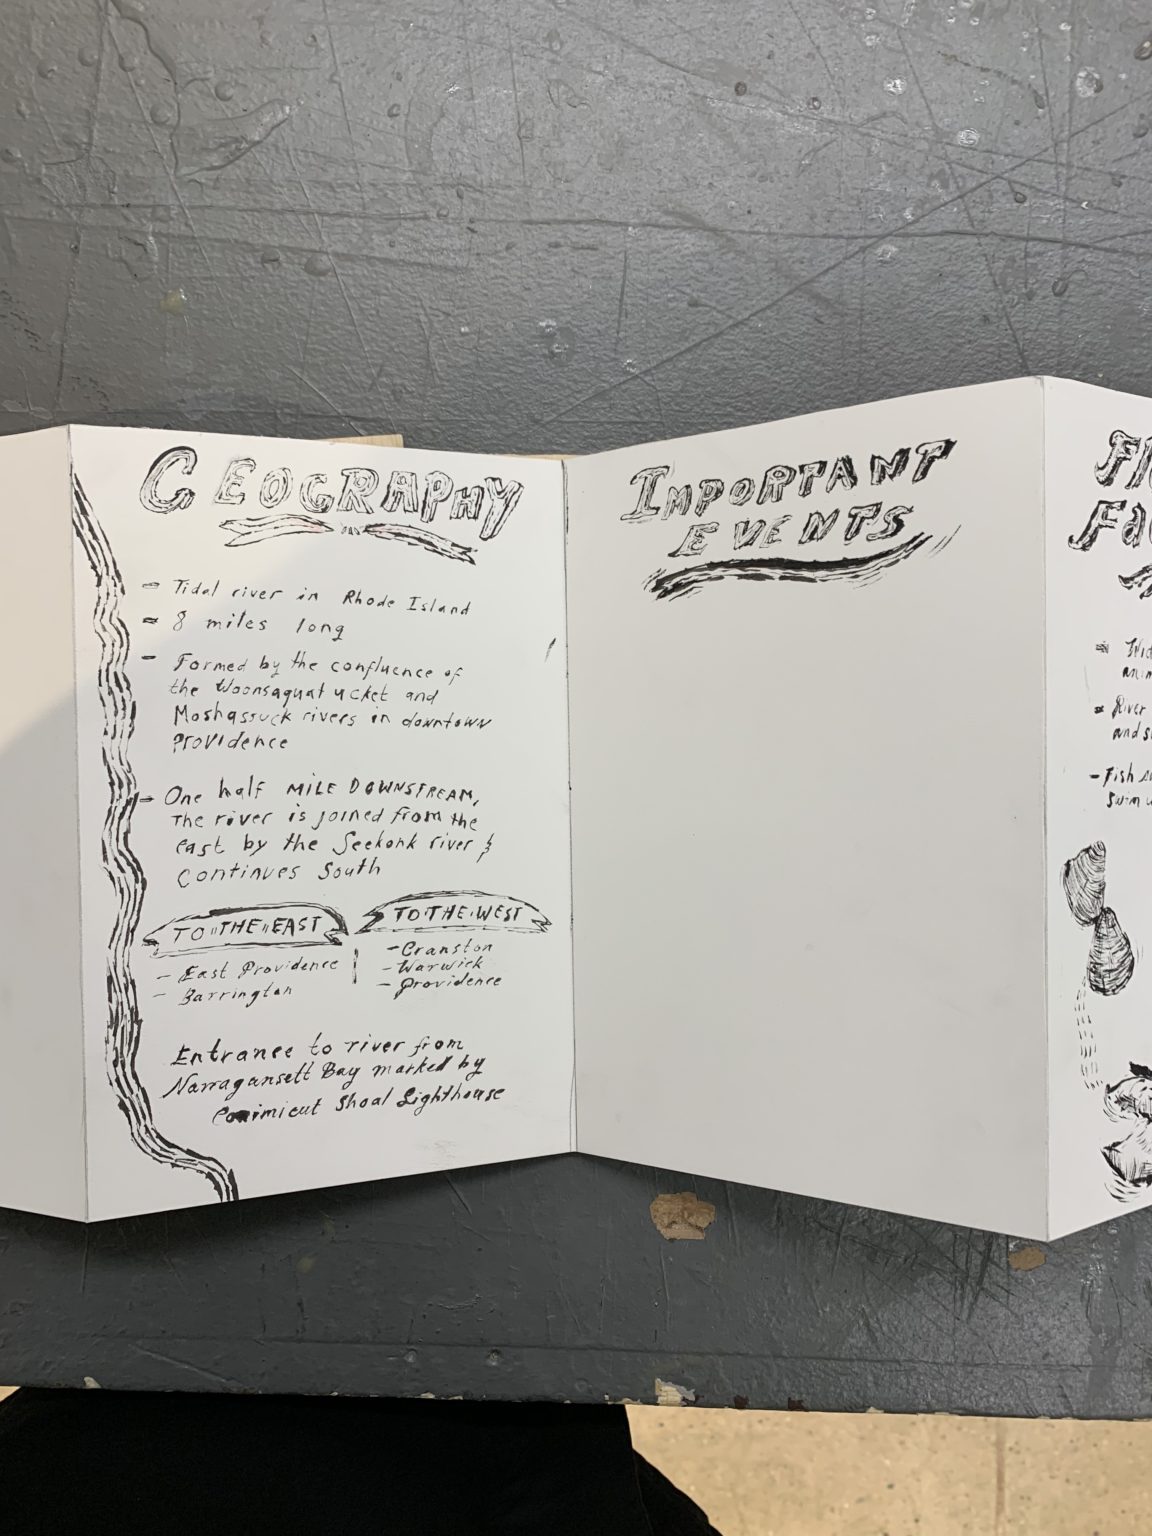 GEOGRAPHY
- Tidal river in Rhode Island
- 8 miles long
- Formed by the confluence of
the Woonsaquatucket and
Moshassuck rivers in downtown
Providence
- One half MILE DOWNSTREAM,
The river is joined from the
east by the Seekonk river &
continues South
TO THE EAST
- East Providence
- Barrington
TO THE WEST
- Cranston
- Warwick
- Providence
Entrance to river from
Narragansett Bay marked by
Conimicut Shoal Lighthouse
IMPORTANT
EVENTS
- River
- Fish
swim